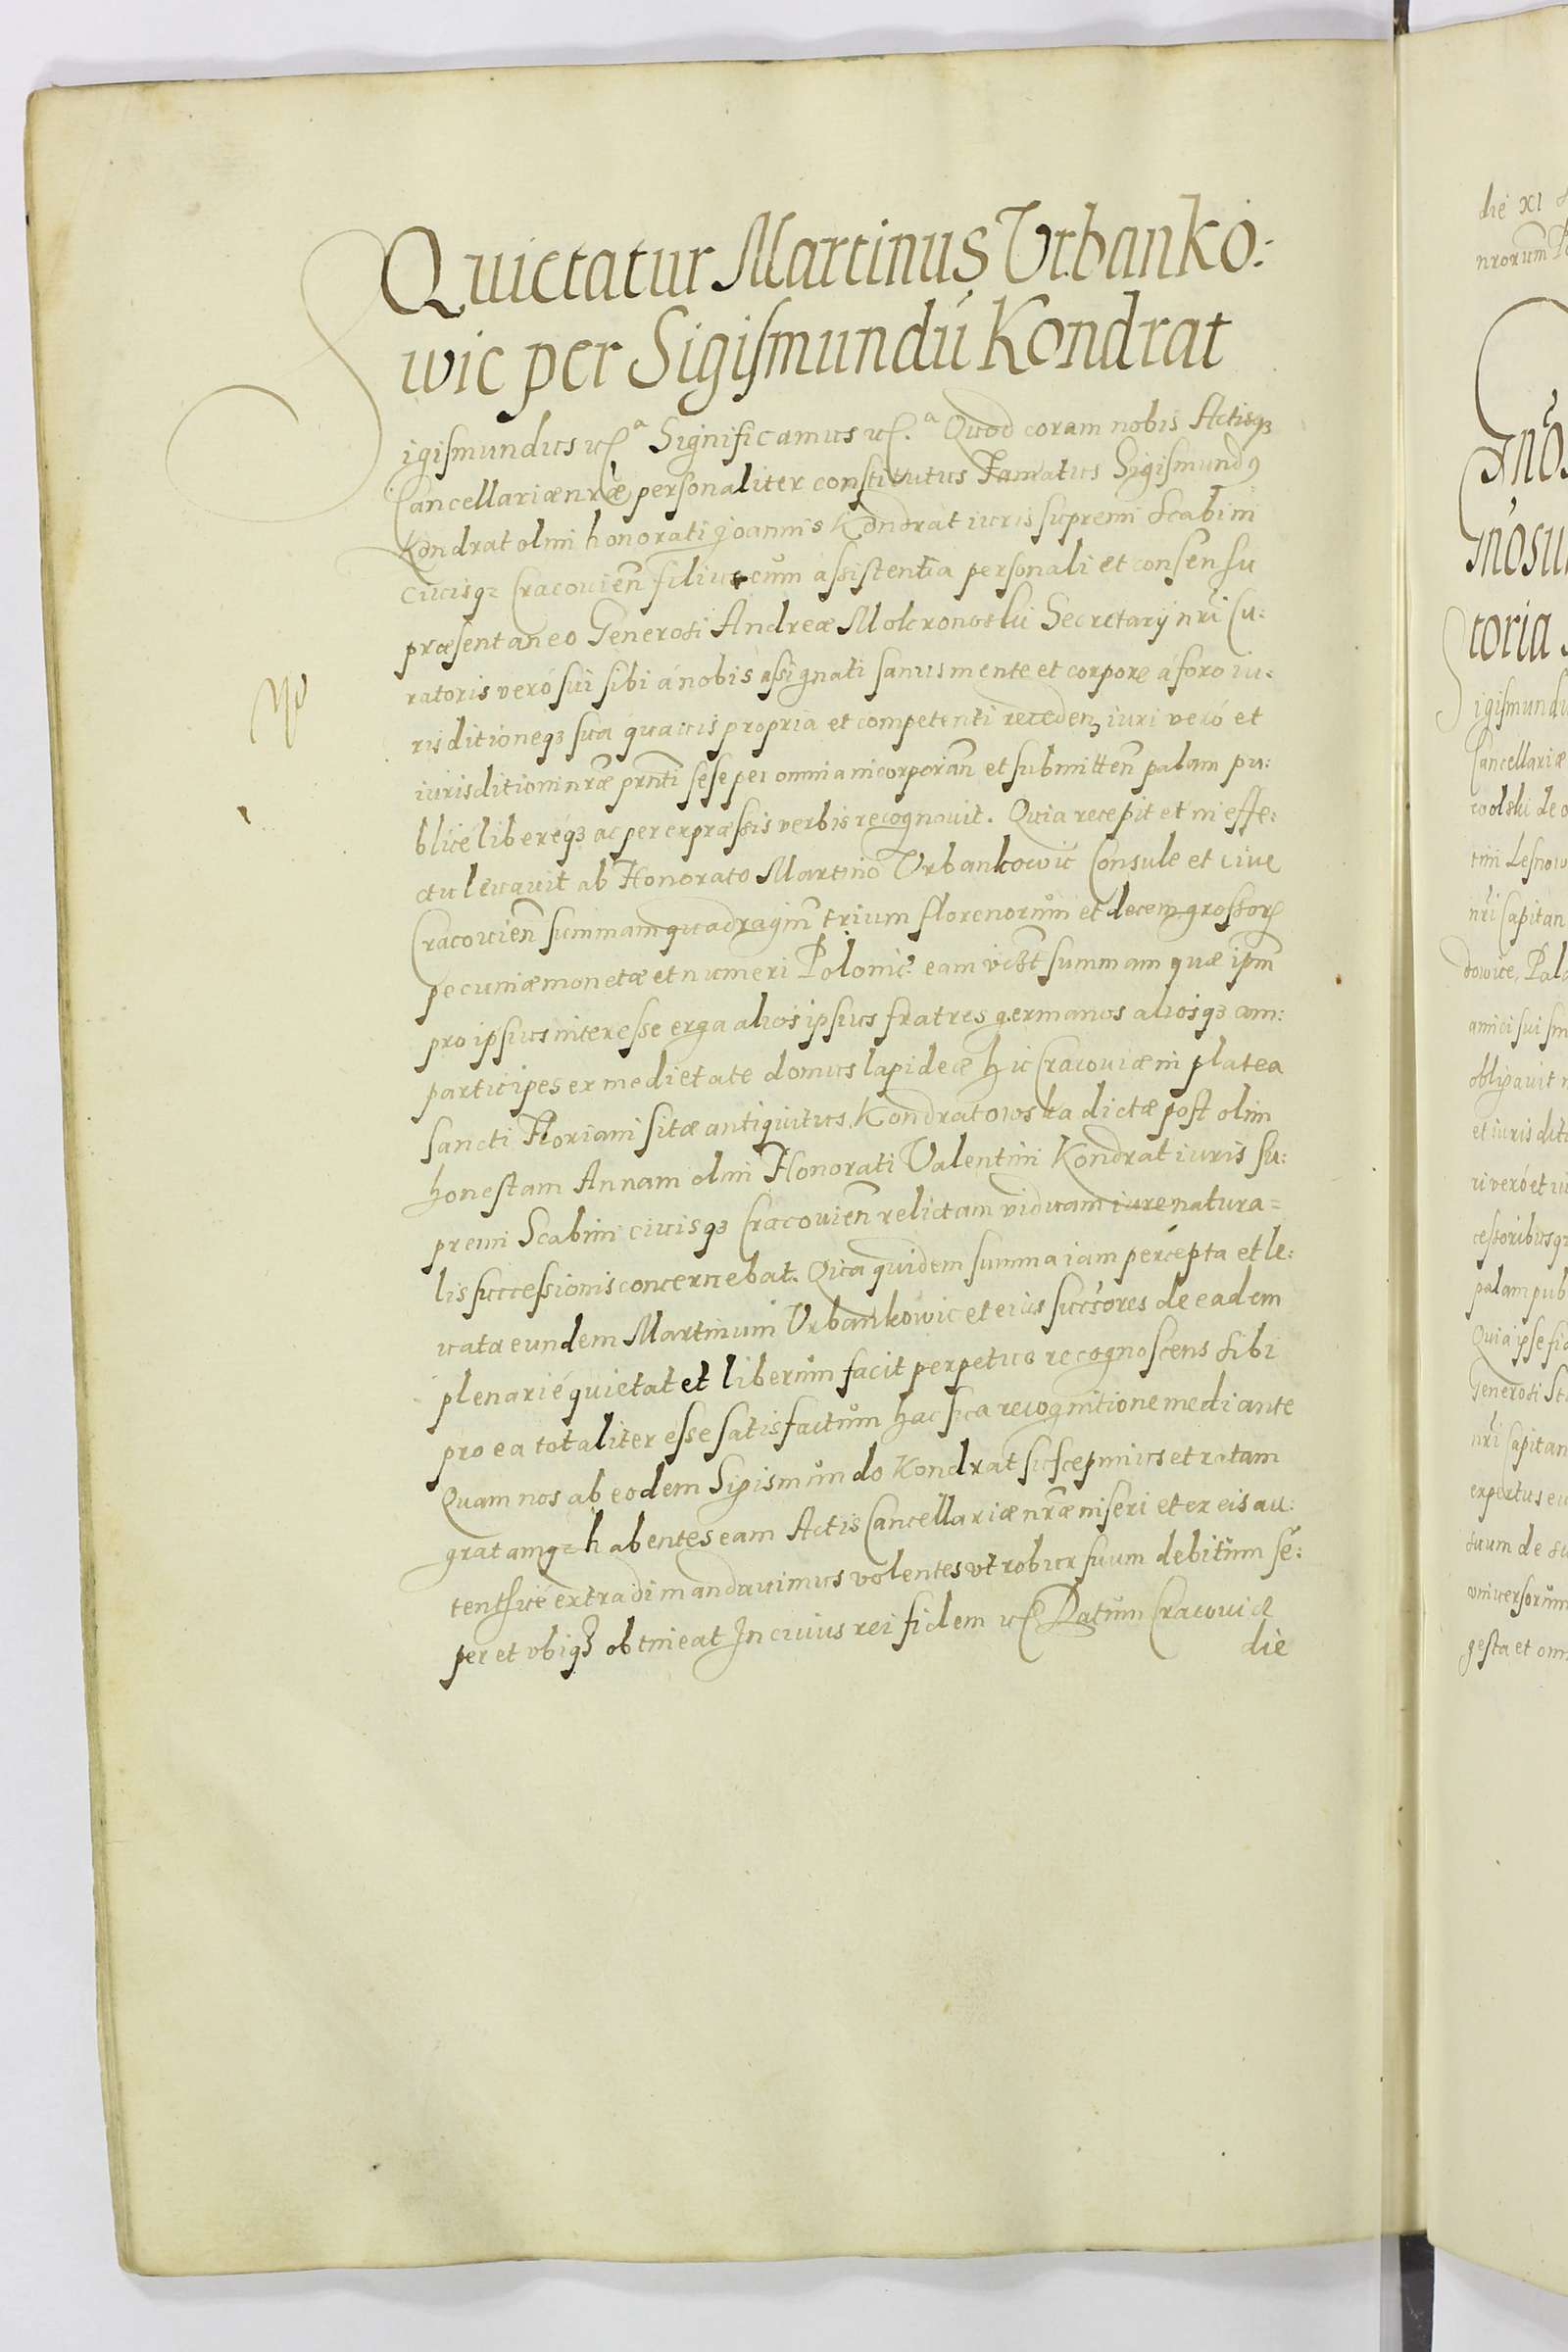 Quietatur Martinus Urbanko:
wic per Sigismundú Kondrat
Sigismundus etc.ᵃ Significamus etc.ᵃ Quod coram nobis Actisqʒ
Cancellariæ nræ personaliter constitutus Famatus Sigismundꝰ
Kondrat olim honorati Joannis Kondrat iuris supremi Scabini
ciuisqʒ Cracouien̄ filius cum assistentia personali et consensu
præsentaneo Generosi Andreæ Mokronowski Secretarij nri Cu:
ratoris veró sui sibi á nobis assignati sanus mente et corpore á foro iu:
risditioneqʒ sua quauis propria et competenti recedenʒ iuri veró et
iurisditioni nræ prnti sese per omnia incorporan̄ et submitten̄ palam pu:
blicé liberéqʒ ac per expræssis verbis recognouit. Quia recepit et in effe:
ctu leuauit ab Honorato Martino Vrbankowic Consule et ciue
Cracouien̄ summam quadragin̄ trium florenorum et decem grossorꝭ
pecuniæ monetæ et numeri Polonic: eam videlt summam quæ ipm̄
pro ipsius interesse erga alios ipsius fratres germanos aliosqʒ com:
participes ex medietate domus lapideæ hic Cracouiæ in platea
sancti Floriani sitæ antiquitus Kondratowska dictæ post olim
honestam Annam olim Honorati Valentini Kondrat iuris su:
premi Scabini ciuisqʒ Cracouien̄ relictam viduam iure natura=
lis successionis concernebat. Qua quidem summa iam percepta et le:
uata eundem Martinum Vrbankowic et eius succsores de eadem
plenarié quietat et liberum facit perpetuo recognoscens sibi
pro ea totaliter esse satisfactum hac sua recognitione mediante
Quam nos ab eodem Sigismundo Kondrat suscepimus et ratam
gratamqʒ habentes eam Actis Cancellariæ nræ inseri et ex eis au:
tenthicé extradi mandauimus volentes vt robur suum debitum sé:
per et vbiqʒ obtineat In cuius rei fidem etc Datum Cracouiæ
die
die XI
nrorum
toria
Sigismundu
Cancellariæ
tini Lesnow
nri Capitan
amici sui
obligauit
et iuris diti
ri veró et iu
cessoribusqʒ
palam pub
Quia ipse
Generosi
nri Capitan
expertus
suum de
vniuersorum
gesta et om